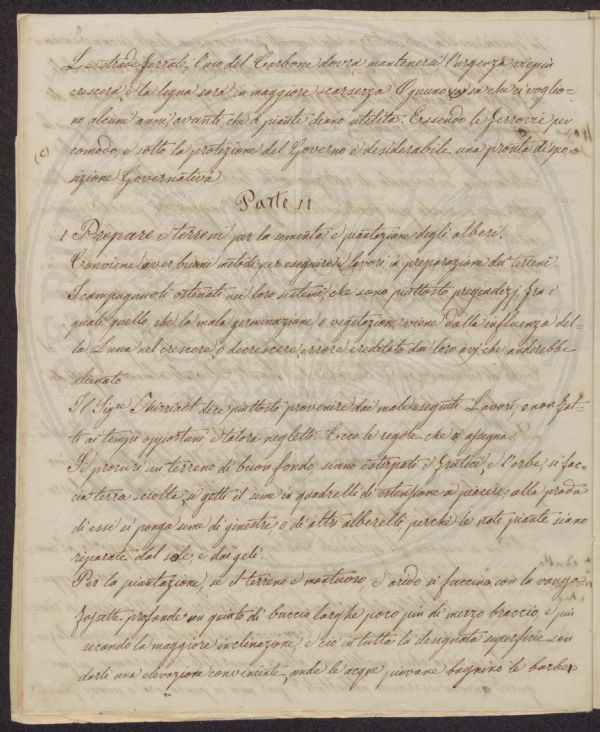 Le strade ferrate, l'uso del Carbone dovrà mantenersi l'urgenza vepiù
crescerà e la legna sarà in maggiore scarsezza Ognuno sa che ci voglio=
no alcuni anni avanti che le piante diano utilità. Essendo le Ferrovie per
(c) comodo, e sotto la protezione del Governo è desiderabile una pronta dispo=
sizione Governativa
Parte II
1 Prepare i terreni per la sementa e piantazione degli alberi.
Conviene aver buoni metodi per eseguire i lavori di preparazione dei terreni.
I campagnuoli ostinati nei loro sistemi, che sono piuttosto pregiudizj, fra i
quali quello, che la mala germinazione o vegetazione viene dalla influenza del=
la Luna nel crescere, o decrescere errore ereditato dai loro avj, che anderebbe
eliminato
Il Sigre Thirriat dice piuttosto provenire dai male eseguiti Lavori, o non fat=
ti ai tempi opportuni e talora negletti. Ecco le regole che ci assegna.
Si procuri un terreno di buon fondo siano estirpati i fratici e l'erbe; si fac=
cia terra sciolta, si getti il seme in quadrelli di estensione a piacere; alla proda
di essi si ponga seme di ginestre, o di altri alberelli perchè le nate piante siano
riparate dal sole, e dai geli.
Per la piantazione, se il terreno è montuoso, e arido si faccino con la vanga
fossette profonde un quinto di braccio larghe poco più di mezzo braccio, e più
secondo la maggiore inclinazione, e ciò in tutta la designata superficie
darli una elevazione conveniente, onde le acque piovane bagnino le barbe